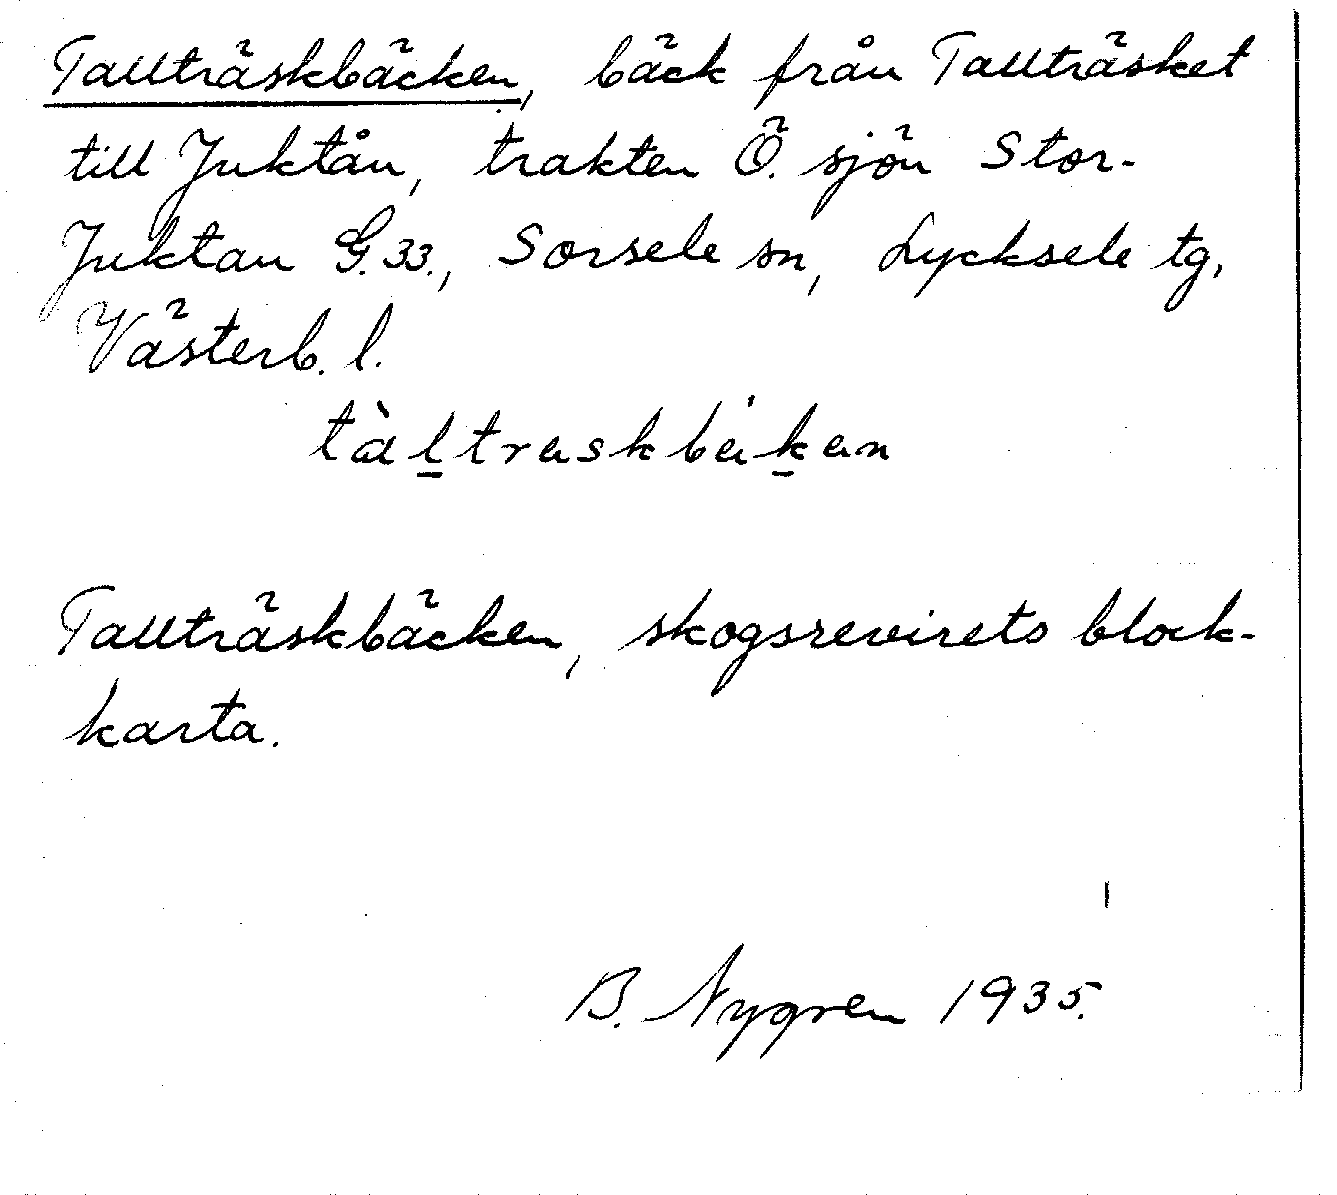 Tallträskbäcken, bäck från Tallträsket
till Juktån, trakten Ö. sjön Stor-
Juktan G. 33., Sorsele sn, Lycksele tg,
Västerb. l.
tàl̲traskbäk̲en
Tallträskbäcken, skogsrevirets block-
karta.
B. Nygren 1935.